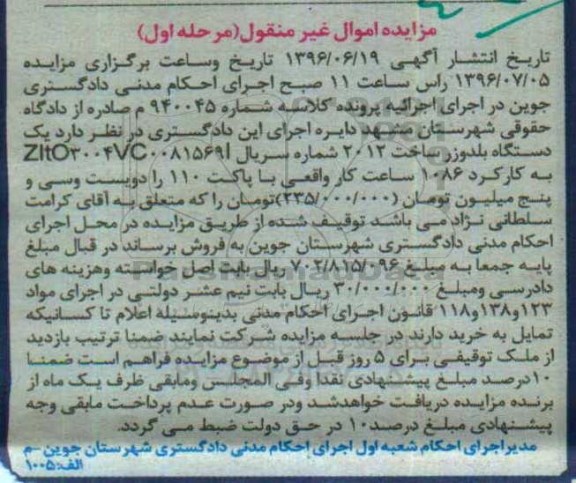 مزایده اموال غیر منقول(مرحله اول)
تاریخ انتشار آگهی ۱۳۹۶/۰۶/۱۹ تاریخ وساعت برگزاری مزایده
۱۳۹۶/۰۷/۰۵ راس ساعت ۱۱ صبح اجرای احکام مدنی دادگستری
جوین در اجرای اجرائیه پرونده کلاسه شماره ۹۴۰۰۴۵ م صادره از دادگاه
حقوقی شهرستان مشهد دایره اجرای این دادگستری در نظر دارد یک
دستگاه بلدوزر ساخت ۲۰۱۲ شماره سریال ZItO۳۰۰۴VC۰۰۸۱۵۶۹I
به کارکرد ۱۰۸۶ ساعت کار واقعی با پاکت ۱۱۰ را دویست وسی و
پنج میلیون تومان (۲۳۵/۰۰۰/۰۰۰)تومان را که متعلق به آقای کرامت
سلطانی نژاد می باشد توقیف شده از طریق مزایده در محل اجرای
احکام مدنی دادگستری شهرستان جوین به فروش برساند در قبال مبلغ
پایه جمعا به مبلغ ۷۰۲/۸۱۵/۰۹۶ ریال بابت اصل خواسته وهزینه های
دادرسی ومبلغ ۳۰/۰۰۰/۰۰۰ ریال بابت نیم عشر دولتی در اجرای مواد
۱۲۳و۱۳۸و۱۱۸ قانون اجرای احکام مدنی بدینوسیله اعلام تا کسانیکه
تمایل به خرید دارند در جلسه مزایده شرکت نمایند ضمنا ترتیب بازدید
از ملک توقیفی برای ۵ روز قبل از موضوع مزایده فراهم است ضمنا
۱۰درصد مبلغ پیشنهادی نقدا وفی المجلس ومابقی ظرف یک ماه از
برنده مزایده دریافت خواهدشد ودر صورت عدم پرداخت مابقی وجه
پیشنهادی مبلغ درصد۱۰ در حق دولت ضبط می گردد.
مدیراجرای احکام شعبه اول اجرای احکام مدنی دادگستری شهرستان جوین -م
الف:۱۰۰۵